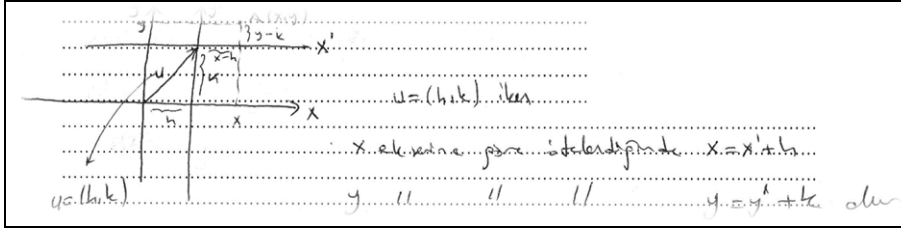 y A(x,y)
} y-k
x'
x-h
u k
u=(h,k) iken
h x x
x eksenine göre ötelendiğinde x=x'+h
u=(h,k) y " " " y=y'+k olur